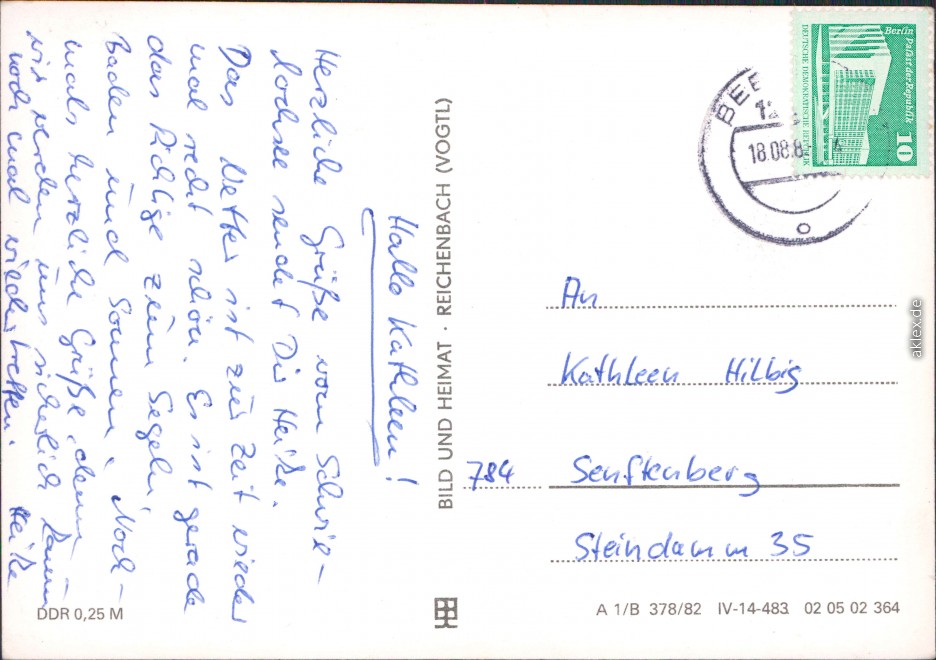 Hallo Kathleen!
Herzliche Grüße vom Schwie-
lochsee sendet Dir Heike.
Das Wetter ist zur Zeit wieder
mal recht schön. Es ist gerade
das Richtige zum Segeln,
Baden und Sonnen. Noch-
mals herzliche Grüße, denn
wir werden uns sicherlich kaum
noch mal wiedertreffen. Heike
BILD UND HEIMAT · REICHENBACH (VOGTL)
DDR 0,25 M
Berlin
Palast der Republik
DEUTSCHE DEMOKRATISCHE REPUBLIK
10
BEE
18.08.8
An
Kathleen Hilbig
784 Senftenberg
Steindamm 35
A 1/B 378/82 IV-14-483 02 05 02 364
aklex.de